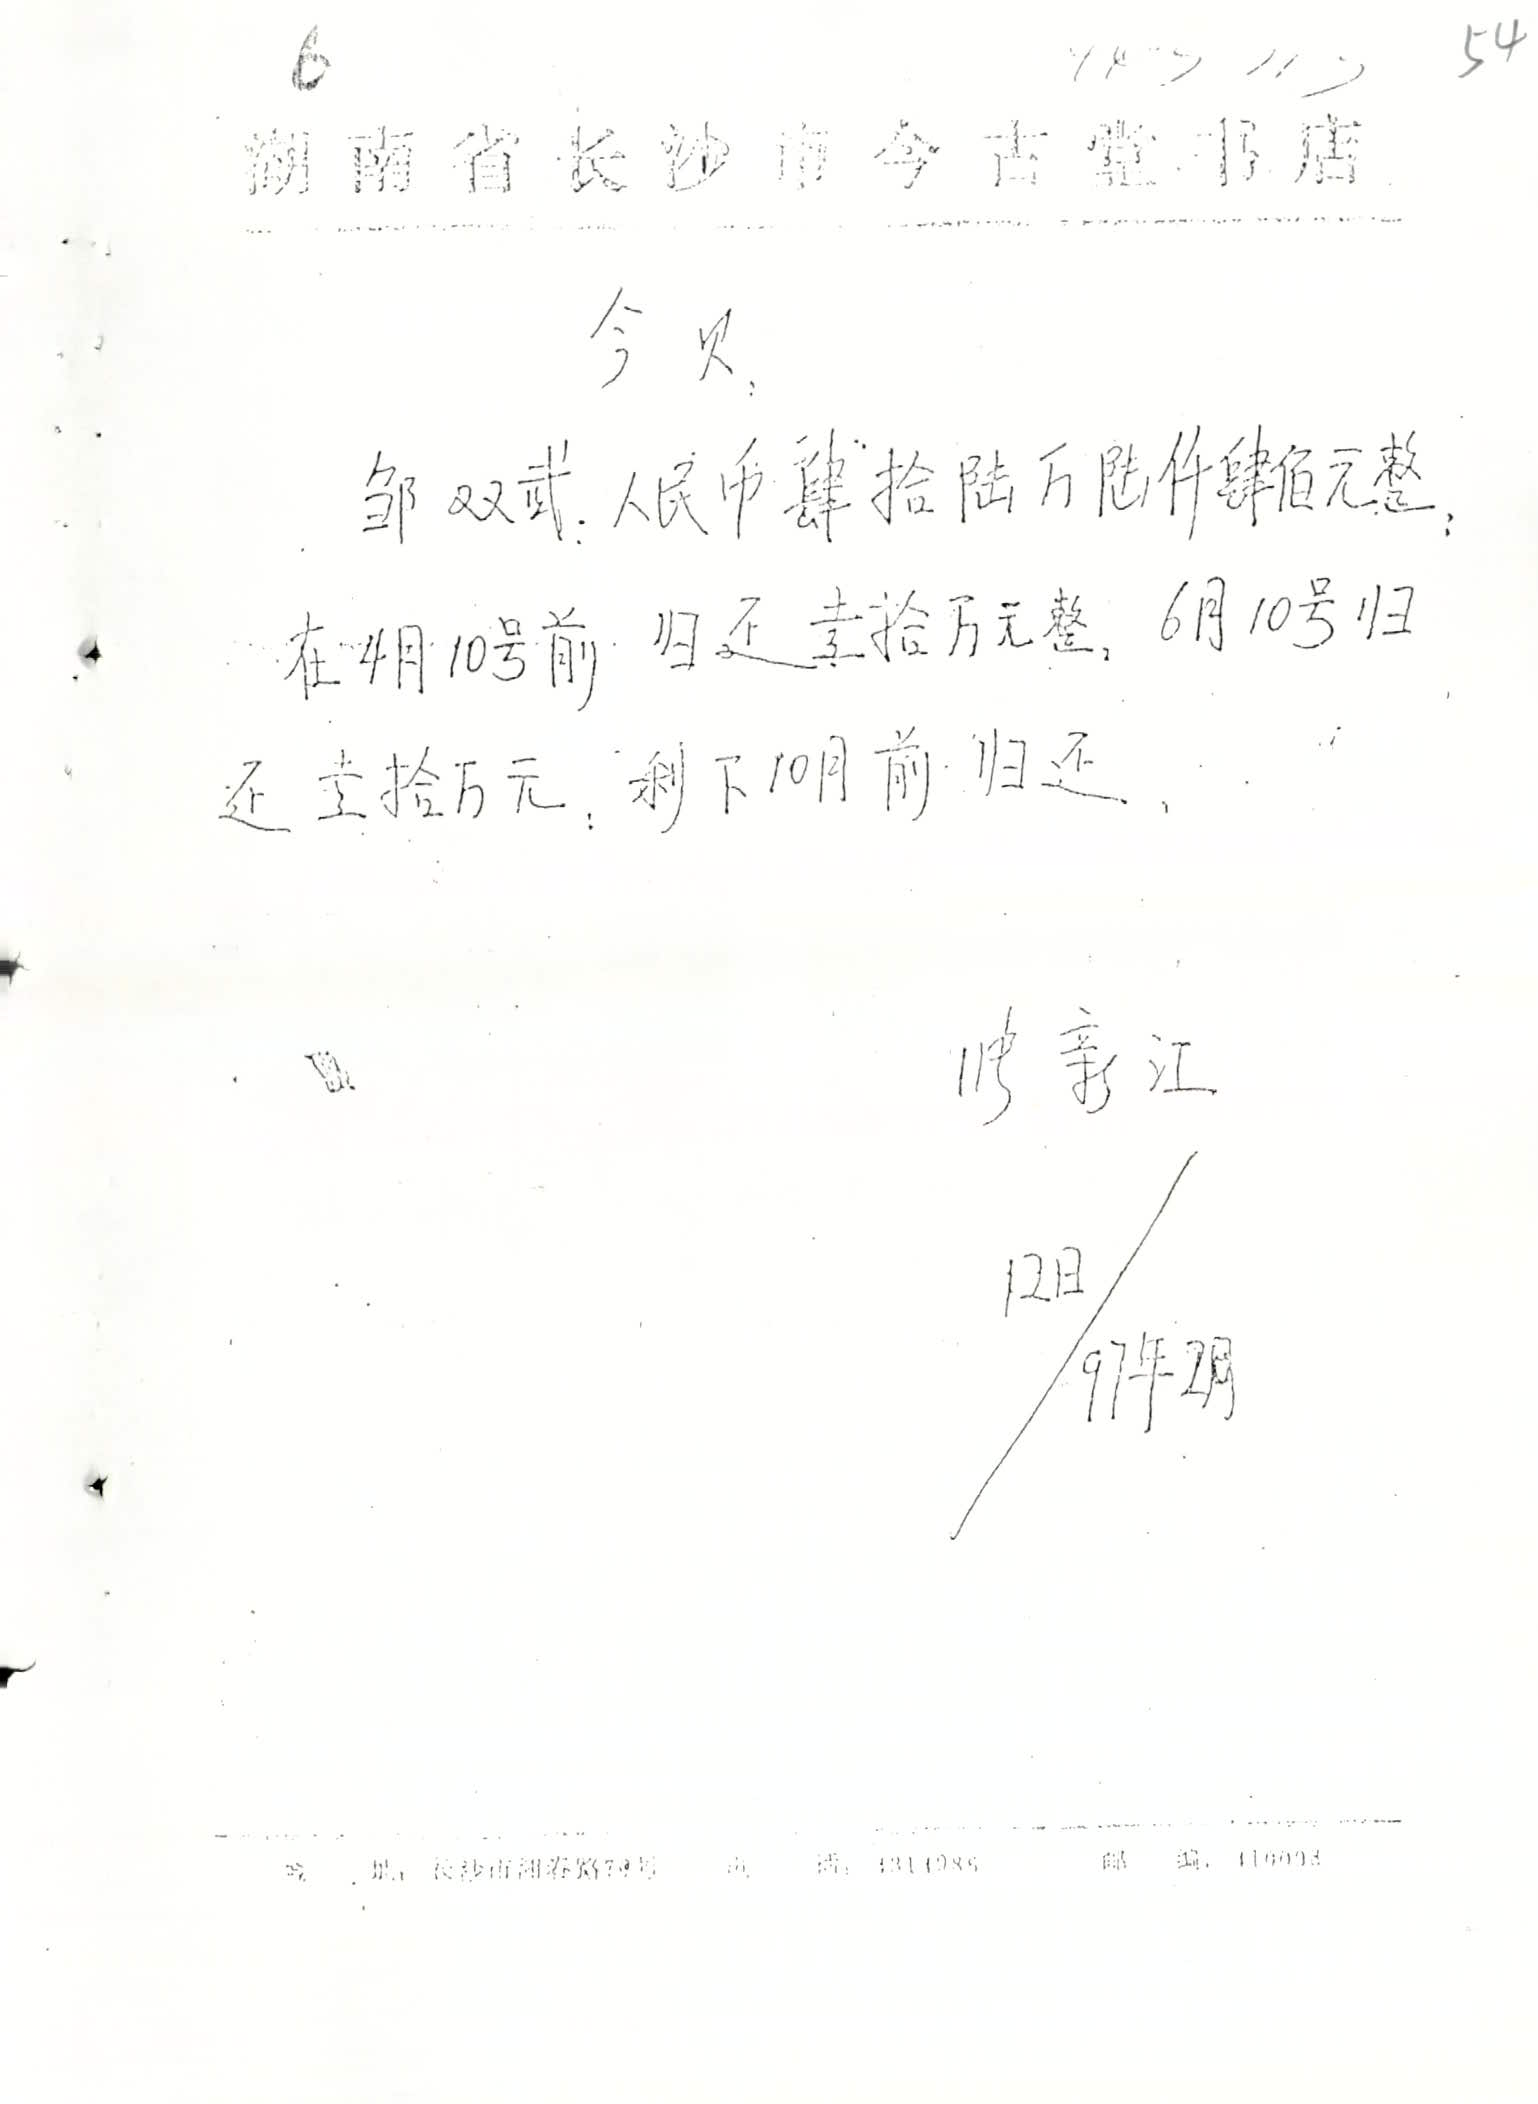 6
54
湖南省长沙市今古堂书店
今欠:
邹双武:人民币肆拾陆万陆仟肆佰元整;
在4月10号前归还壹拾万元整,6月10号归
还壹拾万元;剩下10月前归还,
新江
12日
97年2月
长沙市 路79号 电 话:4314986 邮 编: